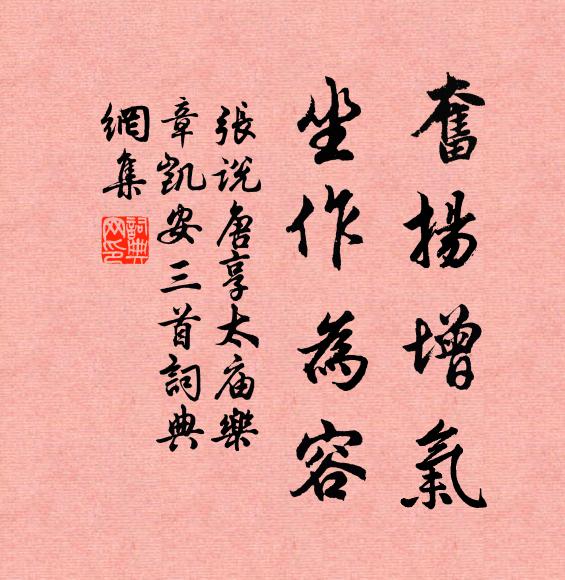 奮揚增氣
坐作為容
張说唐享太庙樂
章凱安三首詞典
網集
詞典
网印